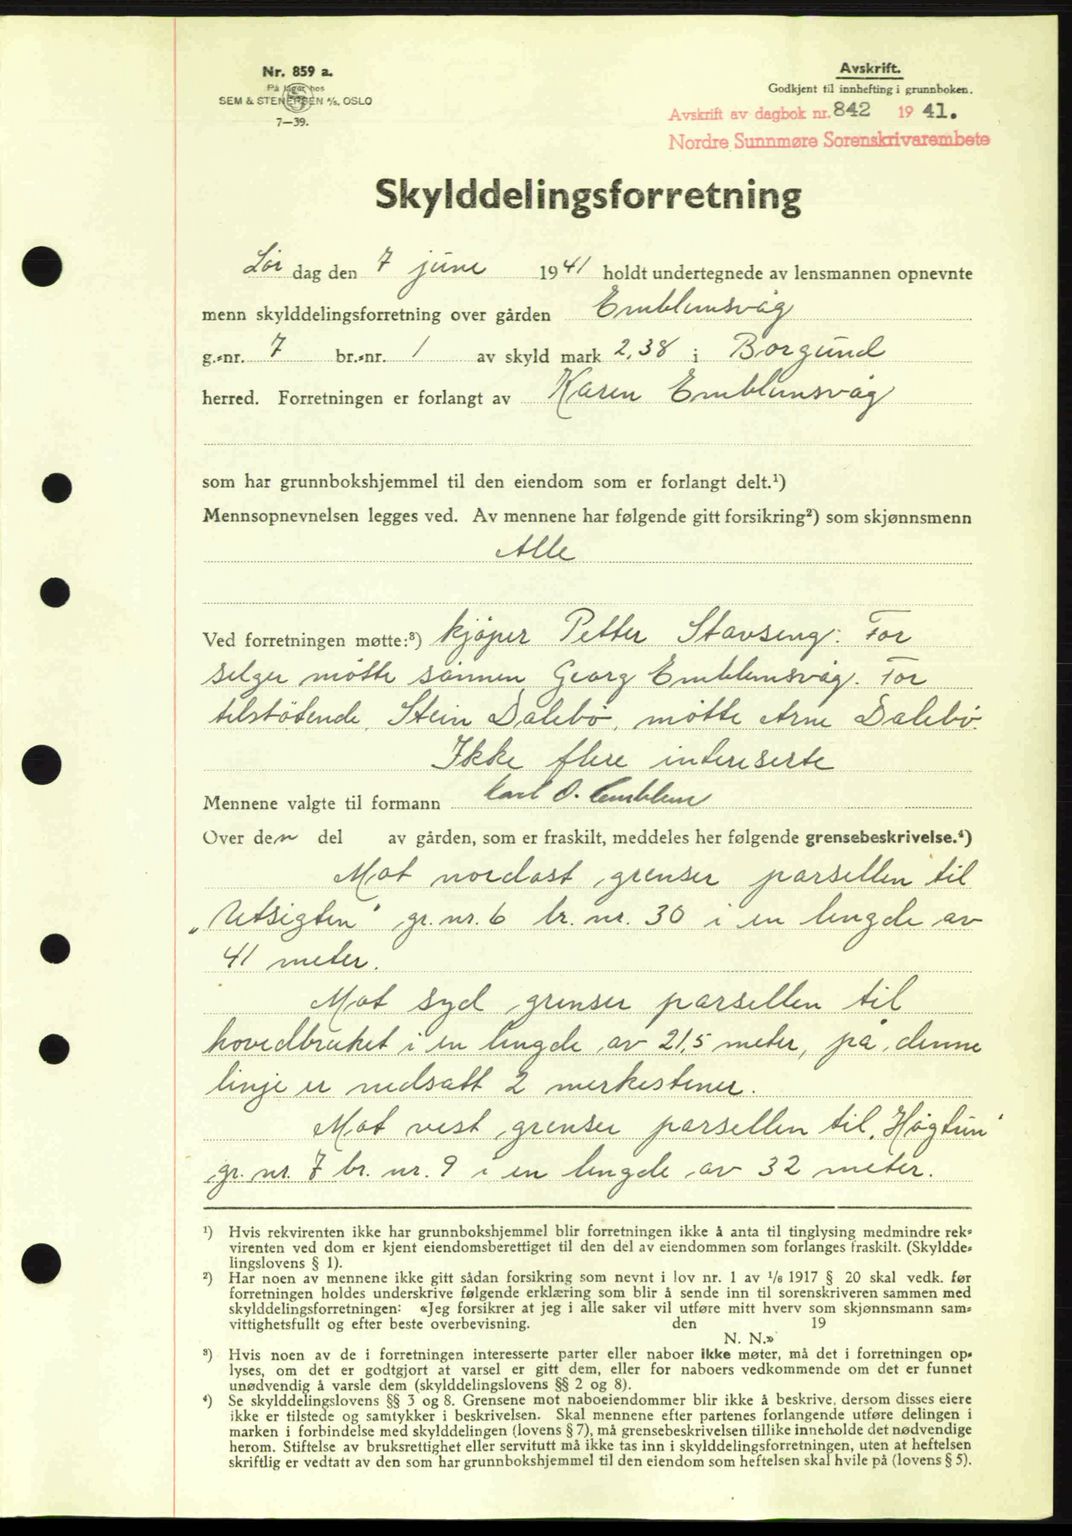 Nr. 859 a.
På lager hos
SEM & STENERSEN A/S, OSLO
7—39.
Avskrift.
Godkjent til innhefting i grunnboken.
Avskrift av dagbok nr. 842 1941.
Nordre Sunnmøre Sorenskrivarembete
Skylddelingsforretning
Lør dag den 7 june 1941 holdt undertegnede av lensmannen opnevnte
menn skylddelingsforretning over gården Emblemsvåg
g.-nr. 7 br.-nr. 1 av skyld mark 2,38 i Borgund
herred. Forretningen er forlangt av Karen Emblemsvåg
som har grunnbokshjemmel til den eiendom som er forlangt delt.¹)
Mennsopnevnelsen legges ved. Av mennene har følgende gitt forsikring²) som skjønnsmenn
Alle
Ved forretningen møtte:³) kjøper Petter Stavseng. For
selger møtte sønnen Georg Emblemsvåg. For
tilstøtende, Stein Dalebø, møtte Arne Dalebø.
Ikke flere intereserte
Mennene valgte til formann Karl O. Emblem
Over den del av gården, som er fraskilt, meddeles her følgende grensebeskrivelse.⁴)
Mot nordost grenser parsellen til
„Utsigten" gr. nr. 6 br. nr. 30 i en lengde av
41 meter.
Mot syd grenser parsellen til
hovedbruket i en lengde av 21,5 meter, på denne
linje er nedsatt 2 merkestener.
Mot vest grenser parsellen til „Høgtun"
gr. nr. 7 br. nr. 9 i en lengde av 32 meter.
¹) Hvis rekvirenten ikke har grunnbokshjemmel blir forretningen ikke å anta til tinglysing medmindre rek-
virenten ved dom er kjent eiendomsberettiget til den del av eiendommen som forlanges fraskilt. (Skyldde-
lingslovens § 1).
²) Har noen av mennene ikke gitt sådan forsikring som nevnt i lov nr. 1 av 1/6 1917 § 20 skal vedk. før
forretningen holdes underskrive følgende erklæring som blir å sende inn til sorenskriveren sammen med
skylddelingsforretningen: «Jeg forsikrer at jeg i alle saker vil utføre mitt hverv som skjønnsmann sam-
vittighetsfullt og efter beste overbevisning. den 19
N. N.»
³) Hvis noen av de i forretningen interesserte parter eller naboer ikke møter, må det i forretningen op-
lyses, om det er godtgjort at varsel er gitt dem, eller for naboers vedkommende om det er funnet
unødvendig å varsle dem (skylddelingslovens §§ 2 og 8).
⁴) Se skylddelingslovens §§ 3 og 8. Grensene mot naboeiendommer blir ikke å beskrive, dersom disses eiere
ikke er tilstede og samtykker i beskrivelsen. Skal mennene efter partenes forlangende utføre delingen i
marken i forbindelse med skylddelingen (lovens § 7), må grensebeskrivelsen tillike inneholde det nødvendige
herom. Stiftelse av bruksrettighet eller servitutt må ikke tas inn i skylddelingsforretningen, uten at heftelsen
skriftlig er vedtatt av den som har grunnbokshjemmel til den eiendom som heftelsen skal hvile på (lovens § 5).